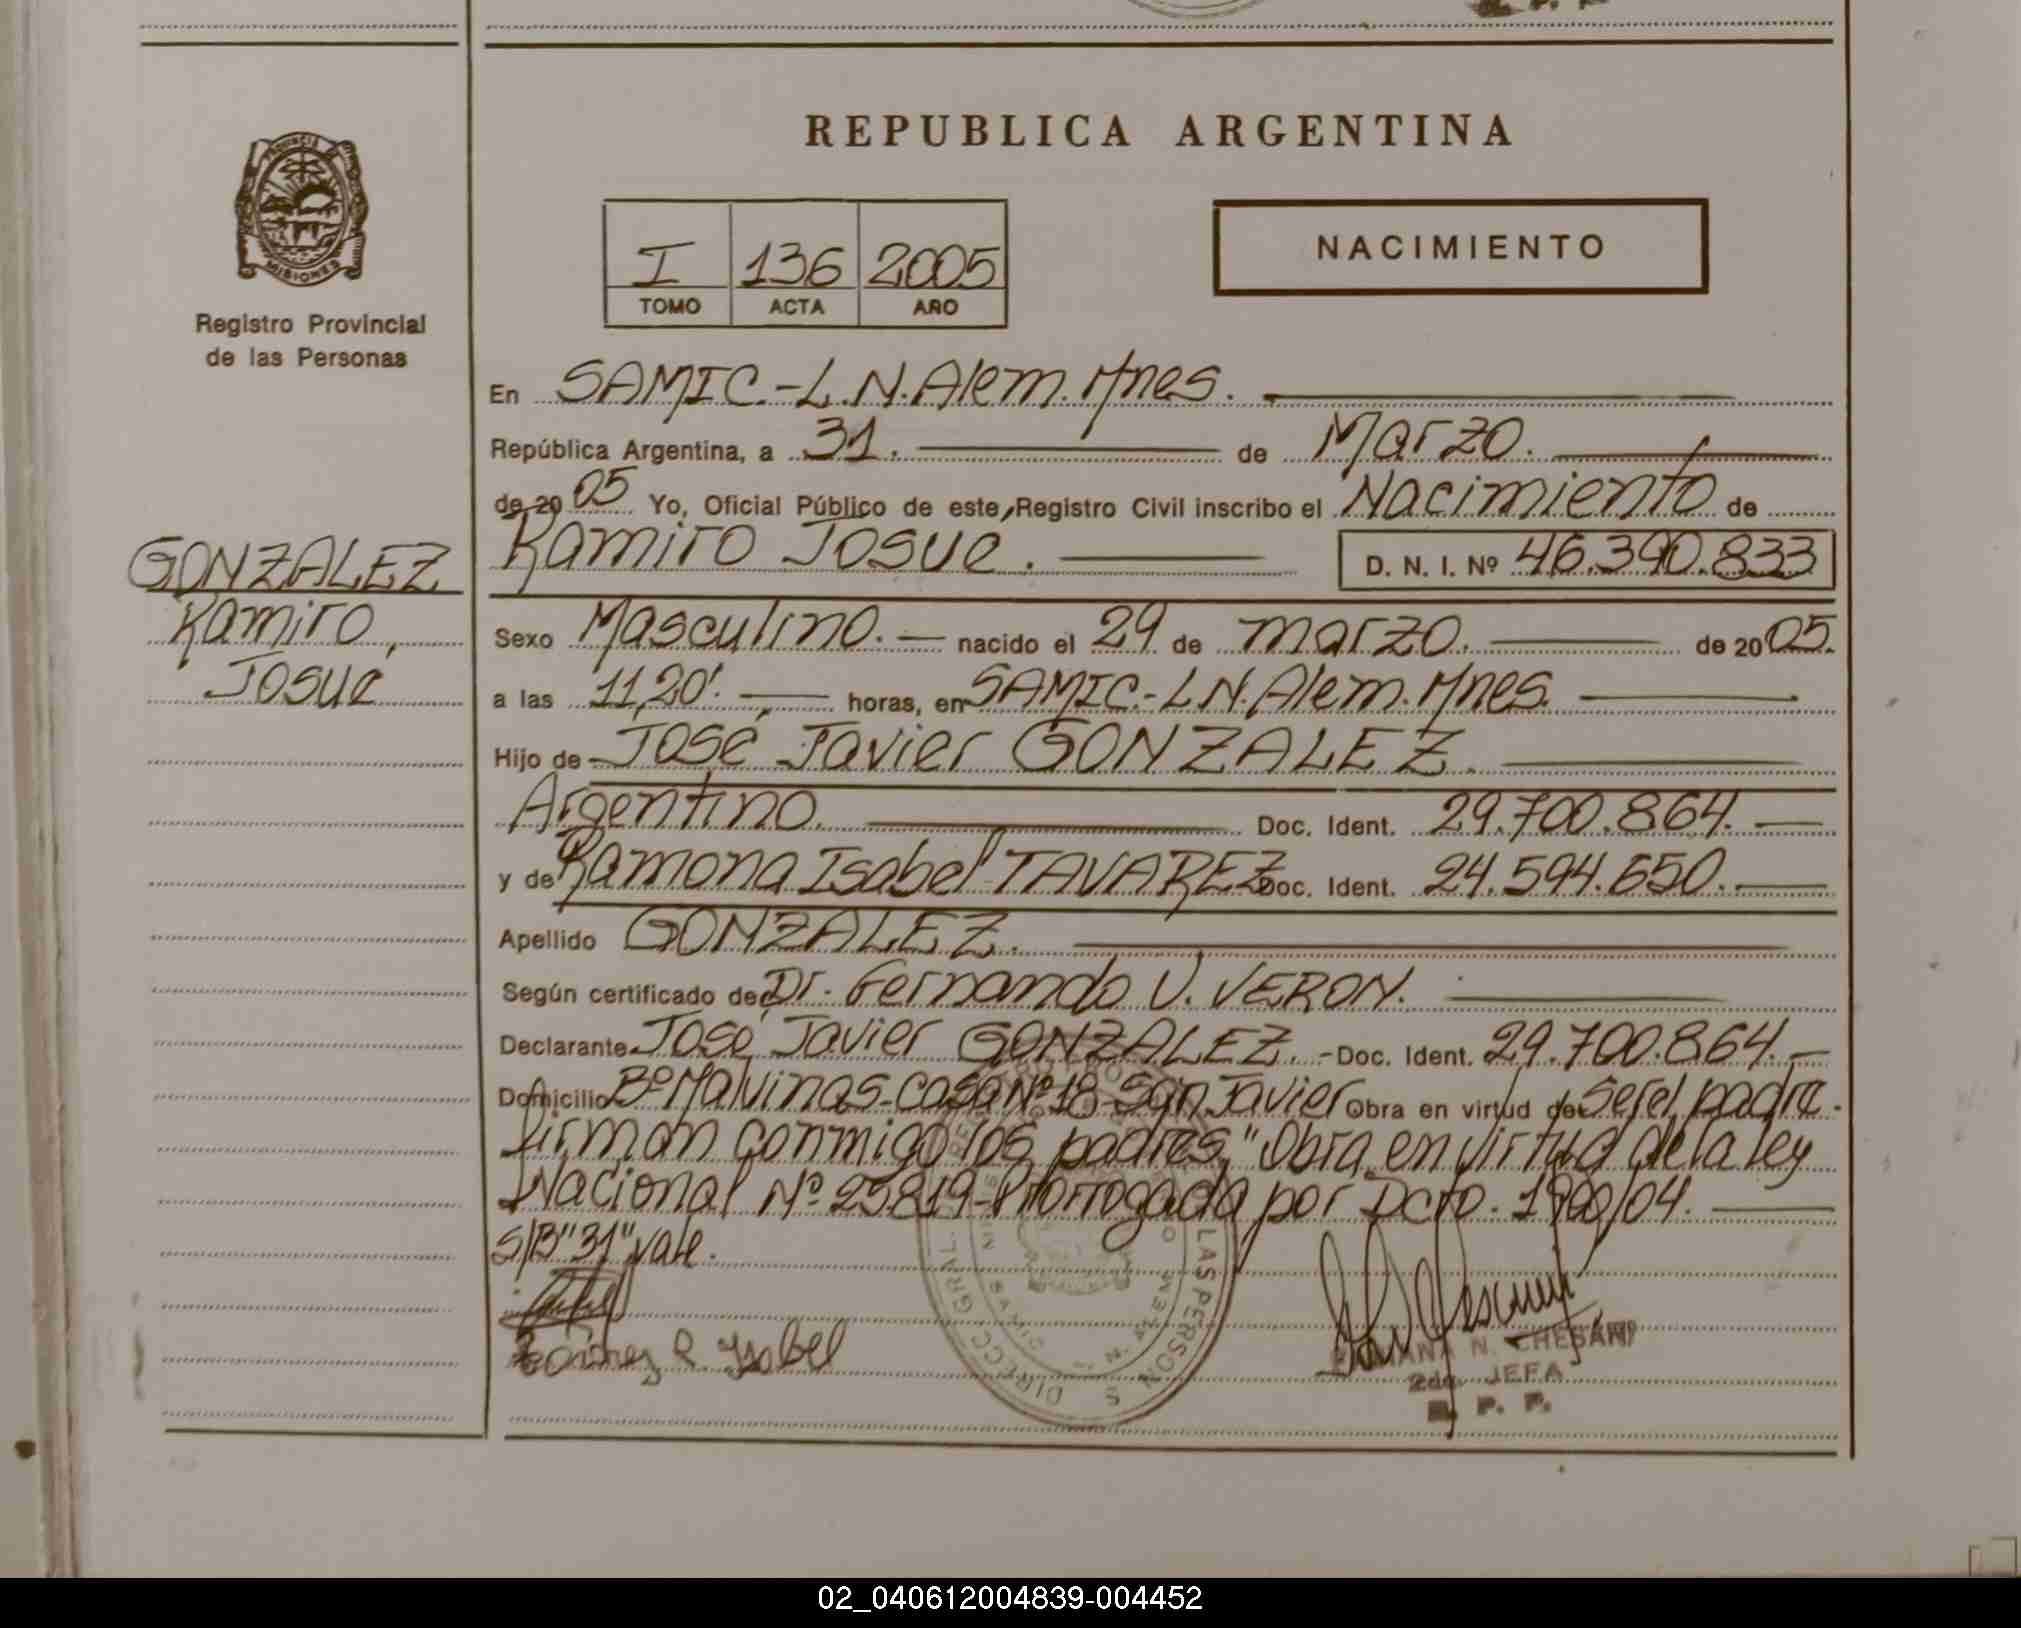 REPUBLICA ARGENTINA
PROVINCIA DE
MISIONES
Registro Provincial
de las Personas
I 136 2005
TOMO ACTA AÑO
NACIMIENTO
En SAMIC.-L.N.Alem.Mnes.
República Argentina, a 31. de Marzo.
de 2005 Yo, Oficial Público de este Registro Civil inscribo el Nacimiento de
GONZALEZ
Ramiro
Josue
Ramiro Josue. D. N. I. Nº 46.390.833
Sexo Masculino. nacido el 29 de marzo. de 2005.
a las 11,20'. horas, en SAMIC.-L.N.Alem.Mnes.
Hijo de José Javier GONZALEZ.
Argentino. Doc. Ident. 29.700.864.
y de Ramona Isabel TAVAREZ Doc. Ident. 24.594.650.
Apellido GONZALEZ.
Según certificado de Dr. Fernando V. VERON.
Declarante José Javier GONZALEZ.- Doc. Ident. 29.700.864.
Domicilio Bº Malvinas-Casa Nº 18-San Javier Obra en virtud de Ser el padre.
Firman conmigo los padres," Obra en virtud de la ley
Nacional Nº 25819-Prorrogada por Dcto. 1900/04.
S/B"31"vale.
Isabel
DIRECC. GRAL. LAS PERSON S
SAMIC N. ALEM
N. CHESANI
2da. JEFA
R. P. P.
02_040612004839-004452